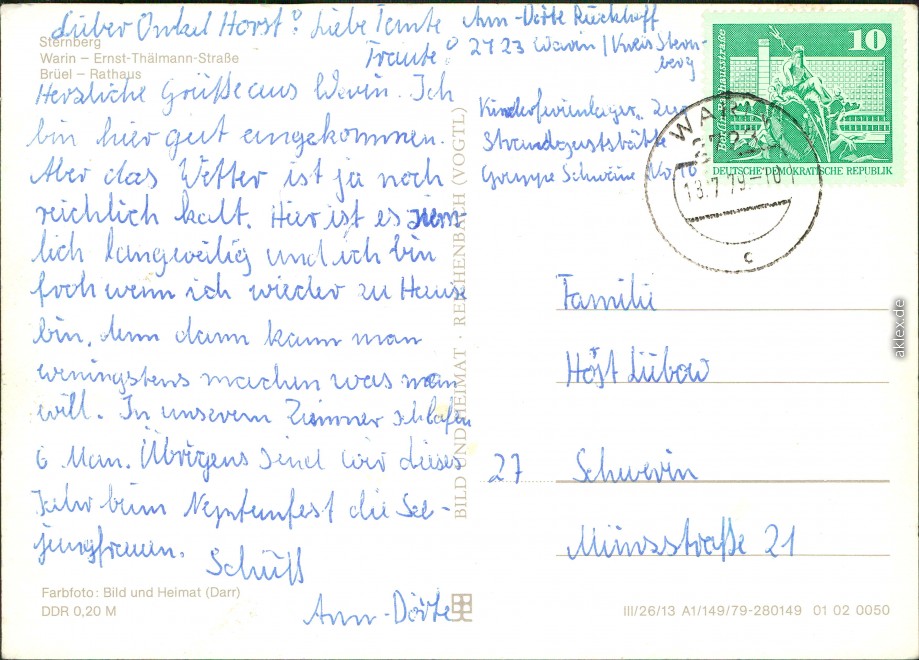 Lieber Onkel Horst! Liebe Tante
Traute!
Sternberg
Warin – Ernst-Thälmann-Straße
Brüel – Rathaus
Herzliche Grüße aus Warin. Ich
bin hier gut angekommen.
Aber das Wetter ist ja noch
reichlich kalt. Hier ist es ziem-
lich langweilig und ich bin
froh wenn ich wieder zu Hause
bin, denn dann kann man
weningstens machen was man
will. In unserem Zimmer schlafen
6 Man. Übrigens sind wir dieses
Jahr beim Neptunfest die See-
jungfrauen.
Schüß
Ann-Dörte
Farbfoto: Bild und Heimat (Darr)
DDR 0,20 M
BILD UND HEIMAT · REICHENBACH (VOGTL)
Ann-Dörte Rückhoff
2723 Warin / Kreis Stern-
berg
Kinderferienlager
Strandgaststätte
Gruppe Schwäne
10
DEUTSCHE DEMOKRATISCHE REPUBLIK
WARIN
2723
18.7.79-10
c
Familie
Horst Lübow
27 Schwerin
Münzstraße 21
III/26/13 A1/149/79-280149 01 02 0050
akpool.de